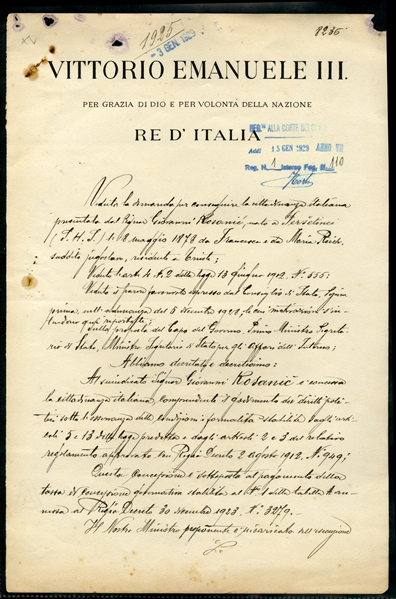 1925
8236
3 GEN. 1929
VITTORIO EMANUELE III.
PER GRAZIA DI DIO E PER VOLONTÀ DELLA NAZIONE
RE D'ITALIA
REG. ALLA CORTE DEI
Addì 15 GEN 1929 ANNO VII
Reg. N. 1 Interno Fog. N. 110
Veduta la domanda per conseguire la cittadinanza italiana
presentata dal Signor Giovanni Rosanić, nato a
(S.H.S.) li 8 maggio 1878 da Francesco e da Maria
suddito jugoslavo, residente a Trieste;
Veduto l'art. 4 N. 2 della legge 13 giugno 1912, N. 555;
Veduto il parere favorevole espresso dal Consiglio di Stato, Sezione
prima, nell'adunanza del 5 1928, le cui motivazioni s'in
tendono qui riportate;
Sulla proposta del Capo del Governo, Primo Ministro Segreta
rio di Stato, Ministro Segretario di Stato per gli Affari dell'Interno;
Abbiamo decretato e decretiamo:
Al suindicato Signor Giovanni Rosanić è concessa
la cittadinanza italiana, comprendente il godimento dei diritti poli
tici sotto l'osservanza delle condizioni e formalità stabilite dagli arti
coli 5 e 13 della legge predetta e dagli articoli 2 e 3 del relativo
regolamento approvato con Regio Decreto 2 agosto 1912, N. 949;
Questa concessione è sottoposta al pagamento della
tassa di concessione governativa stabilita al N. 1 della tabella A an
nessa al Regio Decreto 30 dicembre 1923, N. 3279.
Il Nostro Ministro proponente è incaricato dell'esecuzione